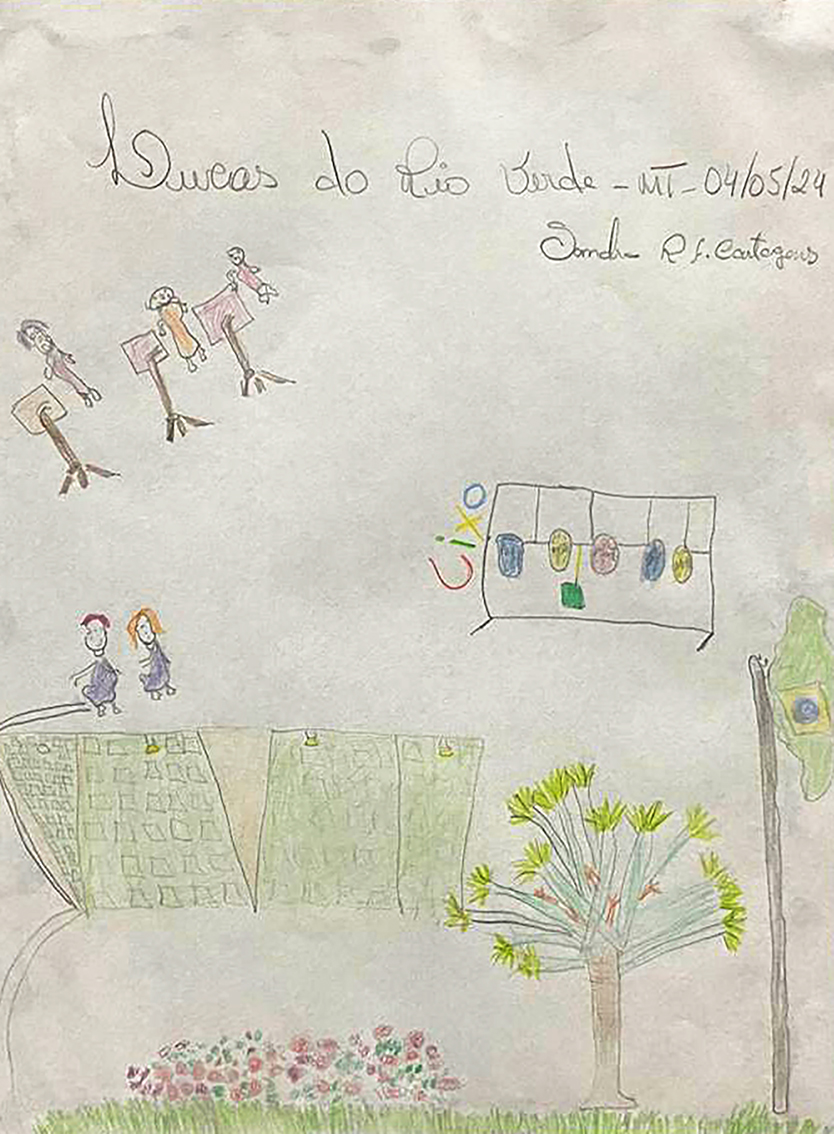 Lucas do Rio Verde - MT - 04/05/24
Sandra R f. Cartagens
Lixo